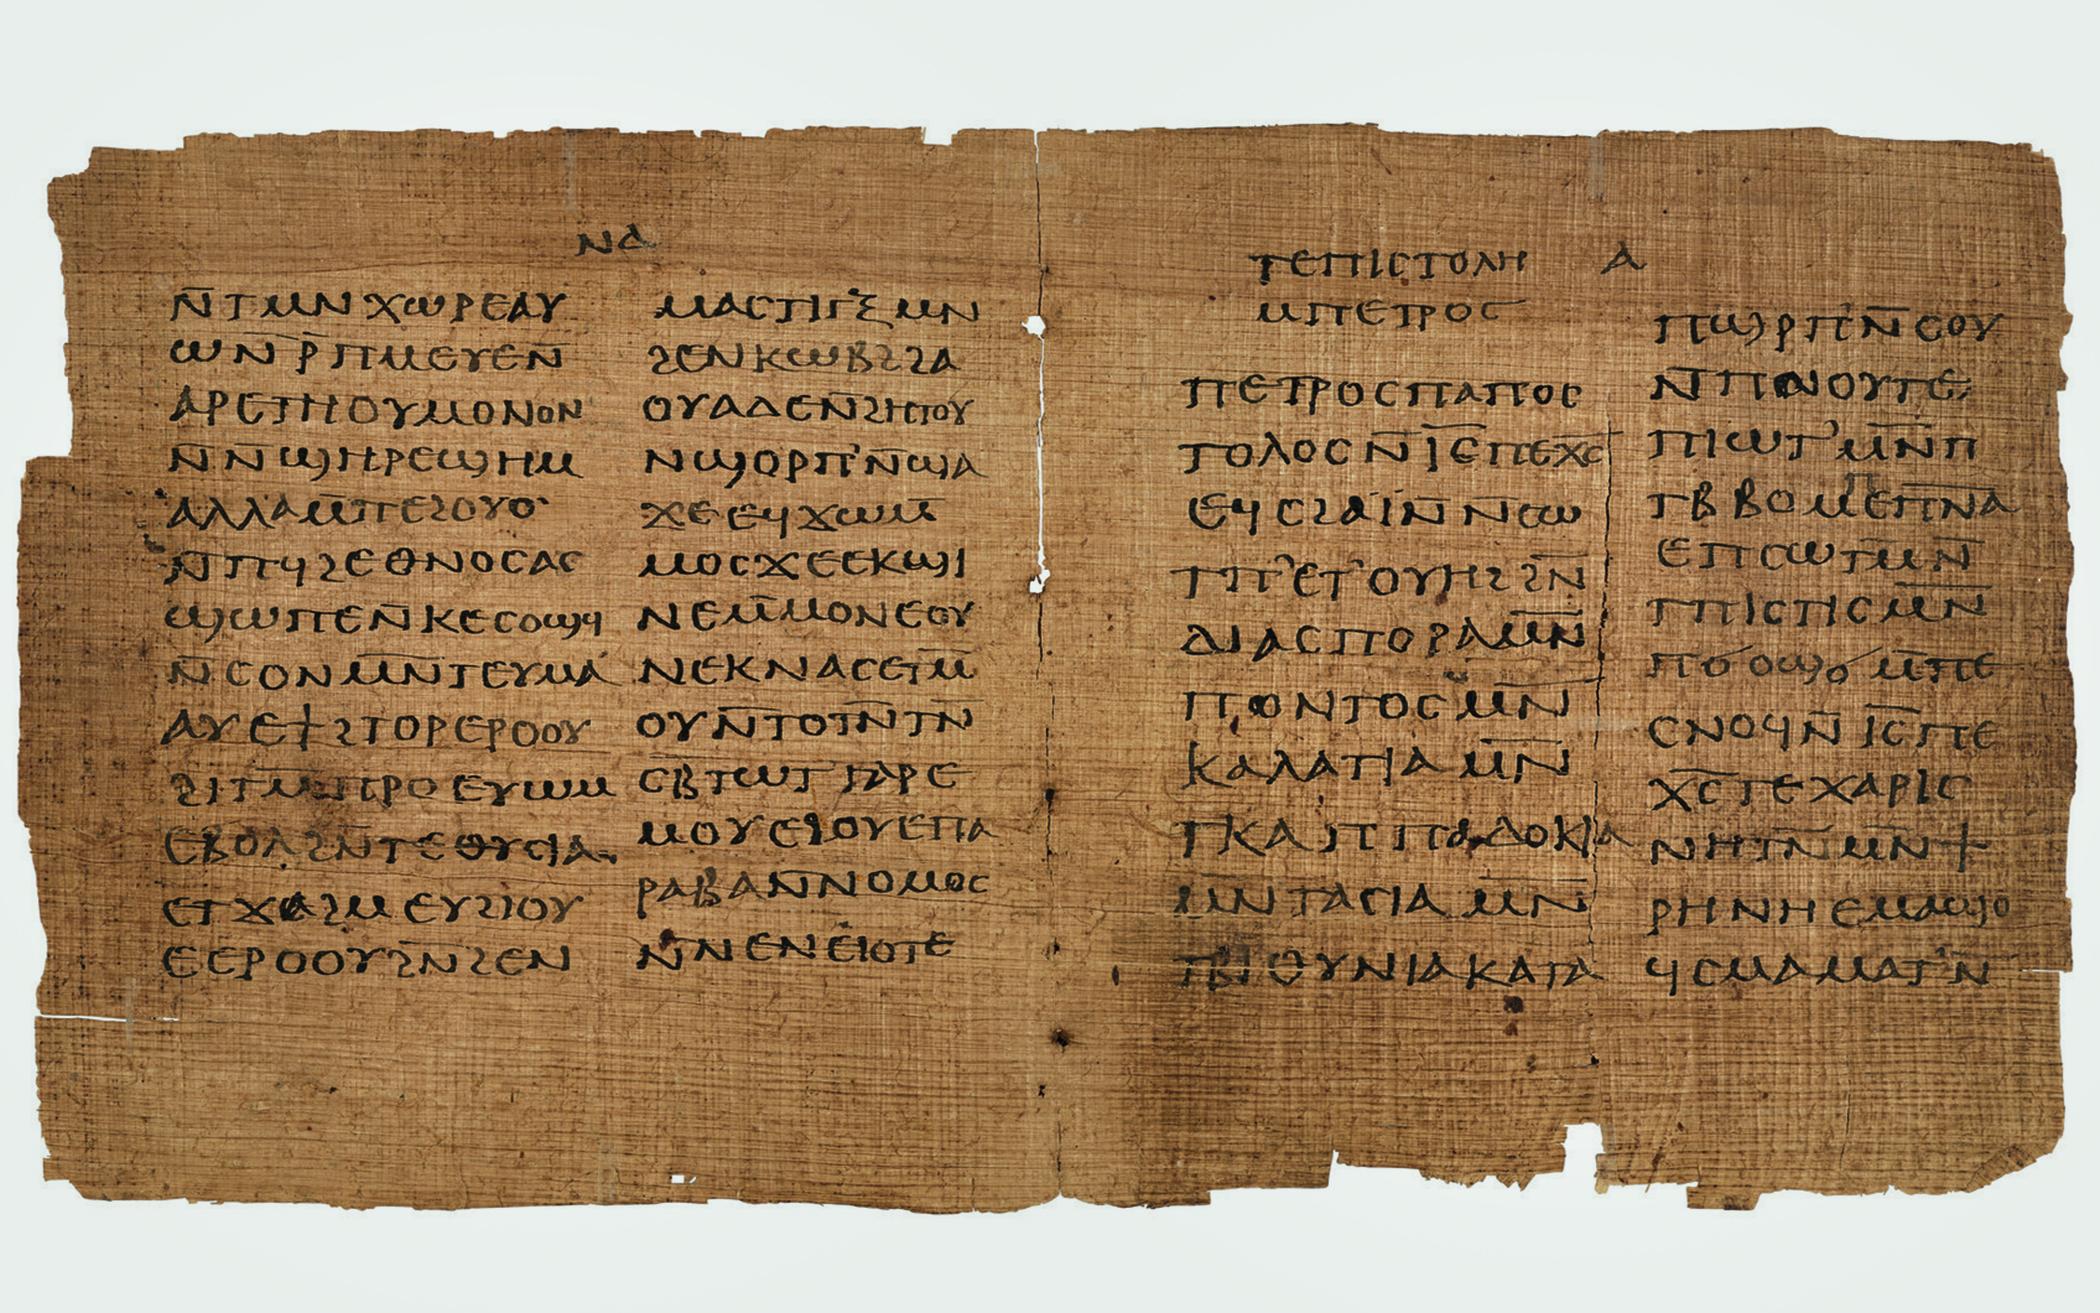 ⲛⲁ
ⲛ̄ⲧⲙⲛⲭⲱⲣⲉⲁⲩ
ⲱⲛ̄ⲣ̄ⲡⲙⲉⲩⲉⲛ̄
ⲁⲣⲉⲧⲏⲟⲩⲙⲟⲛⲟⲛ
ⲛ̄ⲛ̄ϣⲏⲣⲉϣⲏⲙ
ⲁⲗⲗⲁⲙ̄ⲡⲉϩⲟⲩⲟ
ⲛ̄ⲡϥϩⲉⲑⲛⲟⲥⲁⲥ
ϣⲱⲡⲉⲛ̄ⲕⲉⲥⲟϣϥ
ⲛ̄ⲥⲟⲛⲙⲛ̄ⲧⲉⲩⲙⲁ
ⲁⲩⲉϯϩⲧⲟⲣⲉⲣⲟⲟⲩ
ϩⲓⲧⲙ̄ⲡⲣⲟⲉⲩⲱⲙ
ⲉⲃⲟⲗϩⲛ̄ⲧⲉⲑⲩⲥⲓⲁ
ⲉⲧϫⲁϩⲙⲉⲩϩⲓⲟⲩ
ⲉⲉⲣⲟⲟⲩϩⲛ̄ϩⲉⲛ
ⲙⲁⲥⲧⲓⲅⲝⲙⲛ
ϩⲉⲛⲕⲱⲃϩϩⲁ
ⲟⲩⲁⲇⲉⲛ̄ϩⲏⲧⲟⲩ
ⲛϣⲟⲣⲡ'ⲛ̄ϣⲁ
ϫⲉⲉϥϫⲱⲙ̄
ⲙⲟⲥϫⲉⲉⲕϣⲓ
ⲛⲉⲙ̄ⲙⲟⲛⲉⲟⲩ
ⲛⲉⲕⲛⲁⲥⲉⲧⲙ̄
ⲟⲩⲛ̄ⲧⲟⲧⲛ̄ⲧⲛ̄
ⲥⲃ̄ⲧⲱⲧⲡⲁⲣⲉ
ⲙⲟⲩⲉϩⲟⲩⲉⲡⲁ
ⲣⲁⲃⲁⲛ̄ⲛⲟⲙⲟⲥ
ⲛ̄ⲛⲉⲛⲉⲓⲟⲧⲉ
ⲧⲉⲡⲓⲥⲧⲟⲗⲏ ⲁ
ⲙⲡⲉⲧⲣⲟⲥ
ⲡⲉⲧⲣⲟⲥⲡⲁⲡⲟⲥ
ⲧⲟⲗⲟⲥⲛ̄ⲓ̄ⲥ̄ⲡⲉⲭⲥ
ⲉϥⲥϩⲁⲓ̈ⲛ̄ⲛ̄ⲥⲱ
ⲧⲡ'ⲉⲧ'ⲟⲩⲏϩϩⲛ̄
ⲇⲓⲁⲥⲡⲟⲣⲁⲙⲛ̄
ⲡⲟⲛⲧⲟⲥⲙⲛ̄
ⲕⲁⲗⲁⲧⲓⲁⲙⲛ̄
ⲧⲕⲁⲡⲡⲁⲇⲟⲕⲓⲁ
ⲙⲛ̄ⲧⲁⲥⲓⲁⲙⲛ̄
ⲧⲃⲓⲑⲩⲛⲓⲁⲕⲁⲧⲁ
ⲡϣⲣⲡ'ⲛ̄ⲥⲟⲩ
ⲛ̄ⲡⲛⲟⲩⲧⲉ
ⲡⲓⲱⲧ'ⲙⲛ̄ⲡ
ⲧⲃ̄ⲃⲟⲙⲉⲡⲛ̄ⲁ̄
ⲉⲡⲥⲱⲧⲙ̄ⲛ̄
ⲧⲡⲓⲥⲧⲓⲥⲙⲛ̄
ⲡϭⲟϣϭⲙ̄ⲡⲉ
ⲥⲛⲟϥⲛ̄ⲓ̄ⲥ̄ⲡⲉ
ⲭ̄ⲥ̄ⲧⲉⲭⲁⲣⲓⲥ
ⲛⲏⲧⲛ̄ⲙⲛ̄ϯ
ⲣⲏⲛⲏⲉⲙⲁϣⲟ
ϥⲥⲙⲁⲙⲁⲧ'ⲛ̄